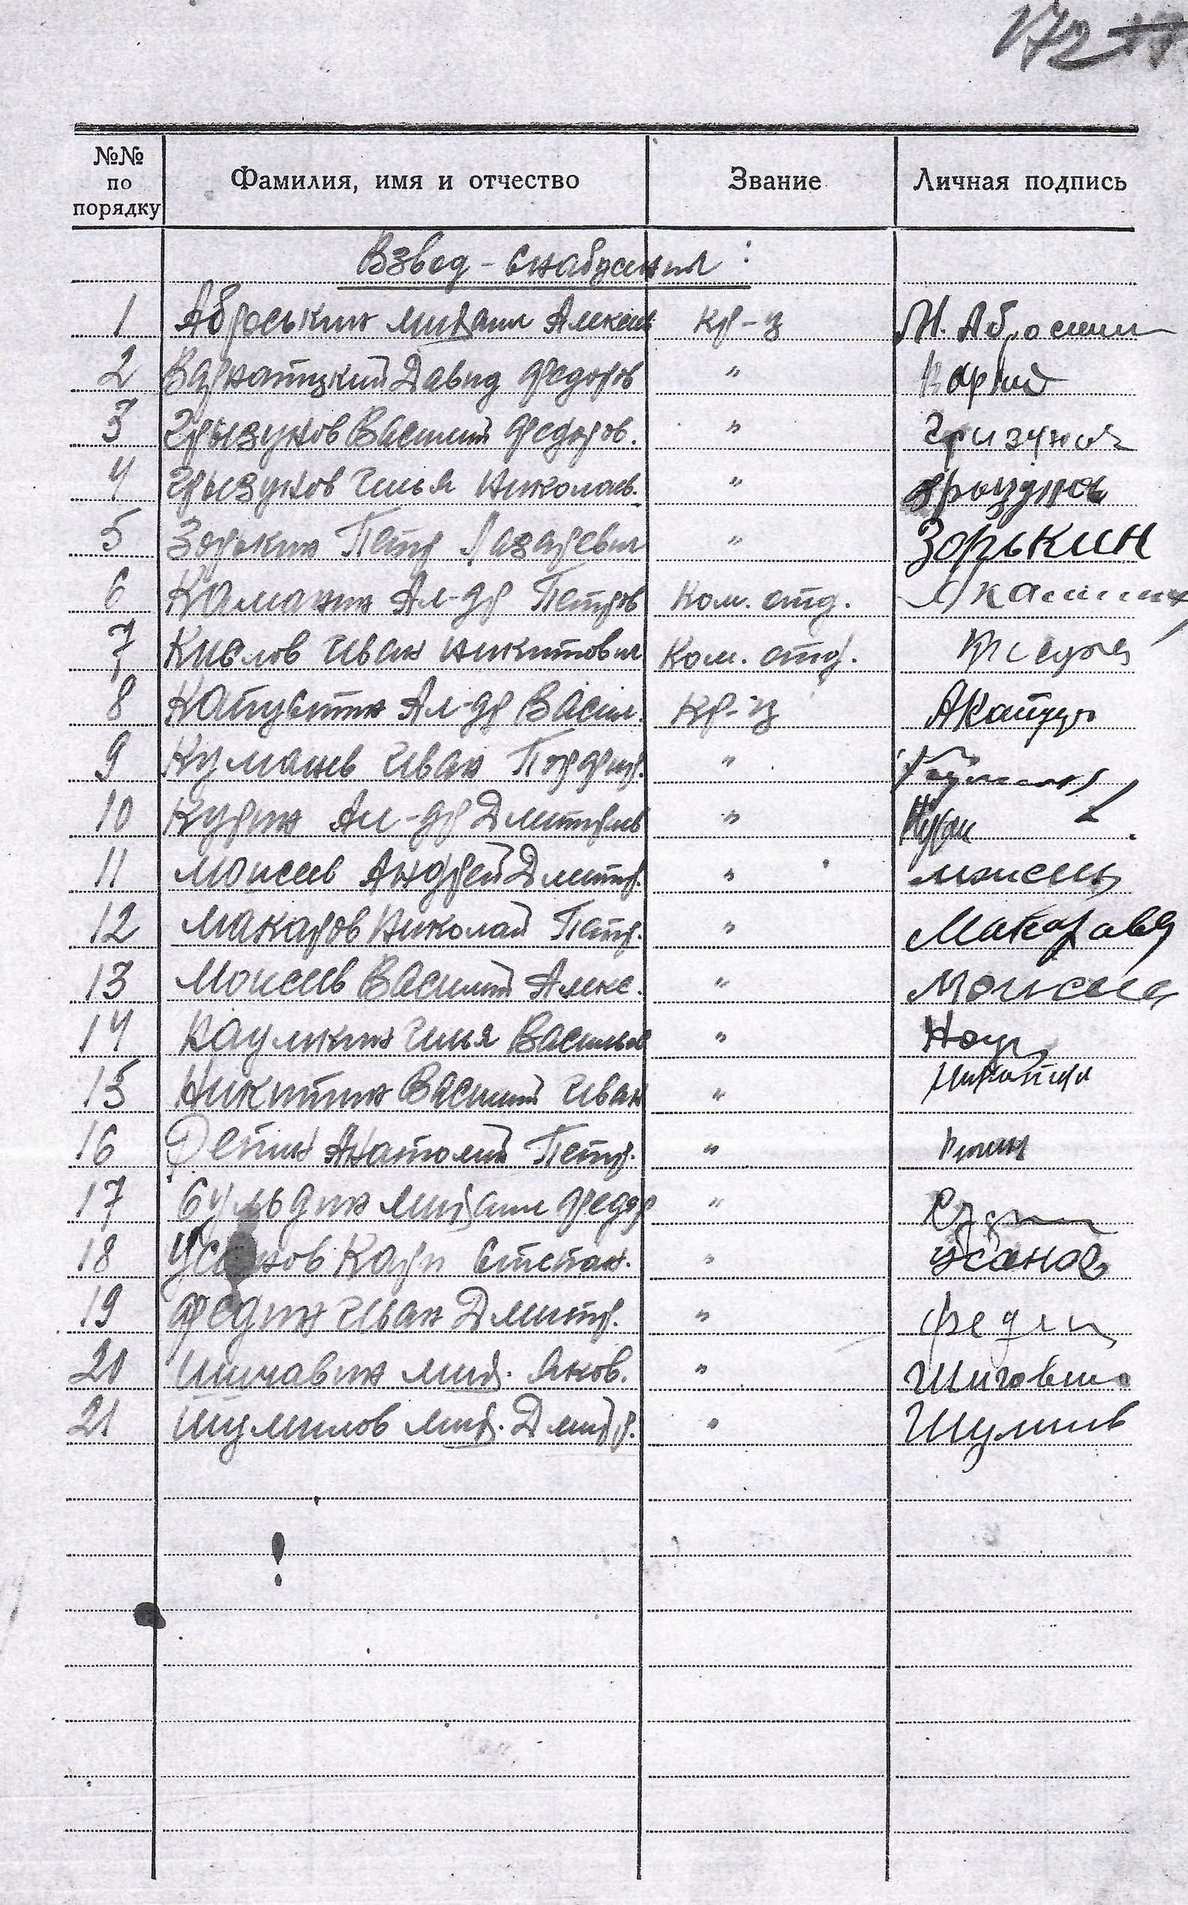 172
№№ по порядку Фамилия, имя и отчество Звание Личная подпись
Взвод - снабжения :
1 Аброськин Михаил Алексе кр-ц М. Абросимин
2 Давид Федоров "
3 Грызунов Василий Федоров. " Гризунов
4 Грызунов Илья Николаев. "
5 Зорькин Петр Лазаревич " Зорькин
6 Каманин Ал-др Петров Ком. отд.
7 Кислов Иван Никитович Ком. отд.
8 Капустин Ал-др Васил. Кр-ц АКапуст
9 Куманев Иван Порфир. "
10 Курин Ал-др Дмитриев "
11 Моисеев Андрей Дмитр. " Моисеев
12 Макаров Николай Петр. " Макаров
13 Моисеев Василий Алекс. " Моисеев
14 Наумкин Илья Васильев " Наум
15 Никитин Василий Иван "
16 Репин Анатолий Петр. "
17 Сульдин Михаил Федор "
18 Усанов Карп Степан. " Усанов
19 Федин Иван Дмитр. " Федин
20 Шичавин Мих. Яков. "
21 Шумилов Мих. Дмитр. " Шумилов